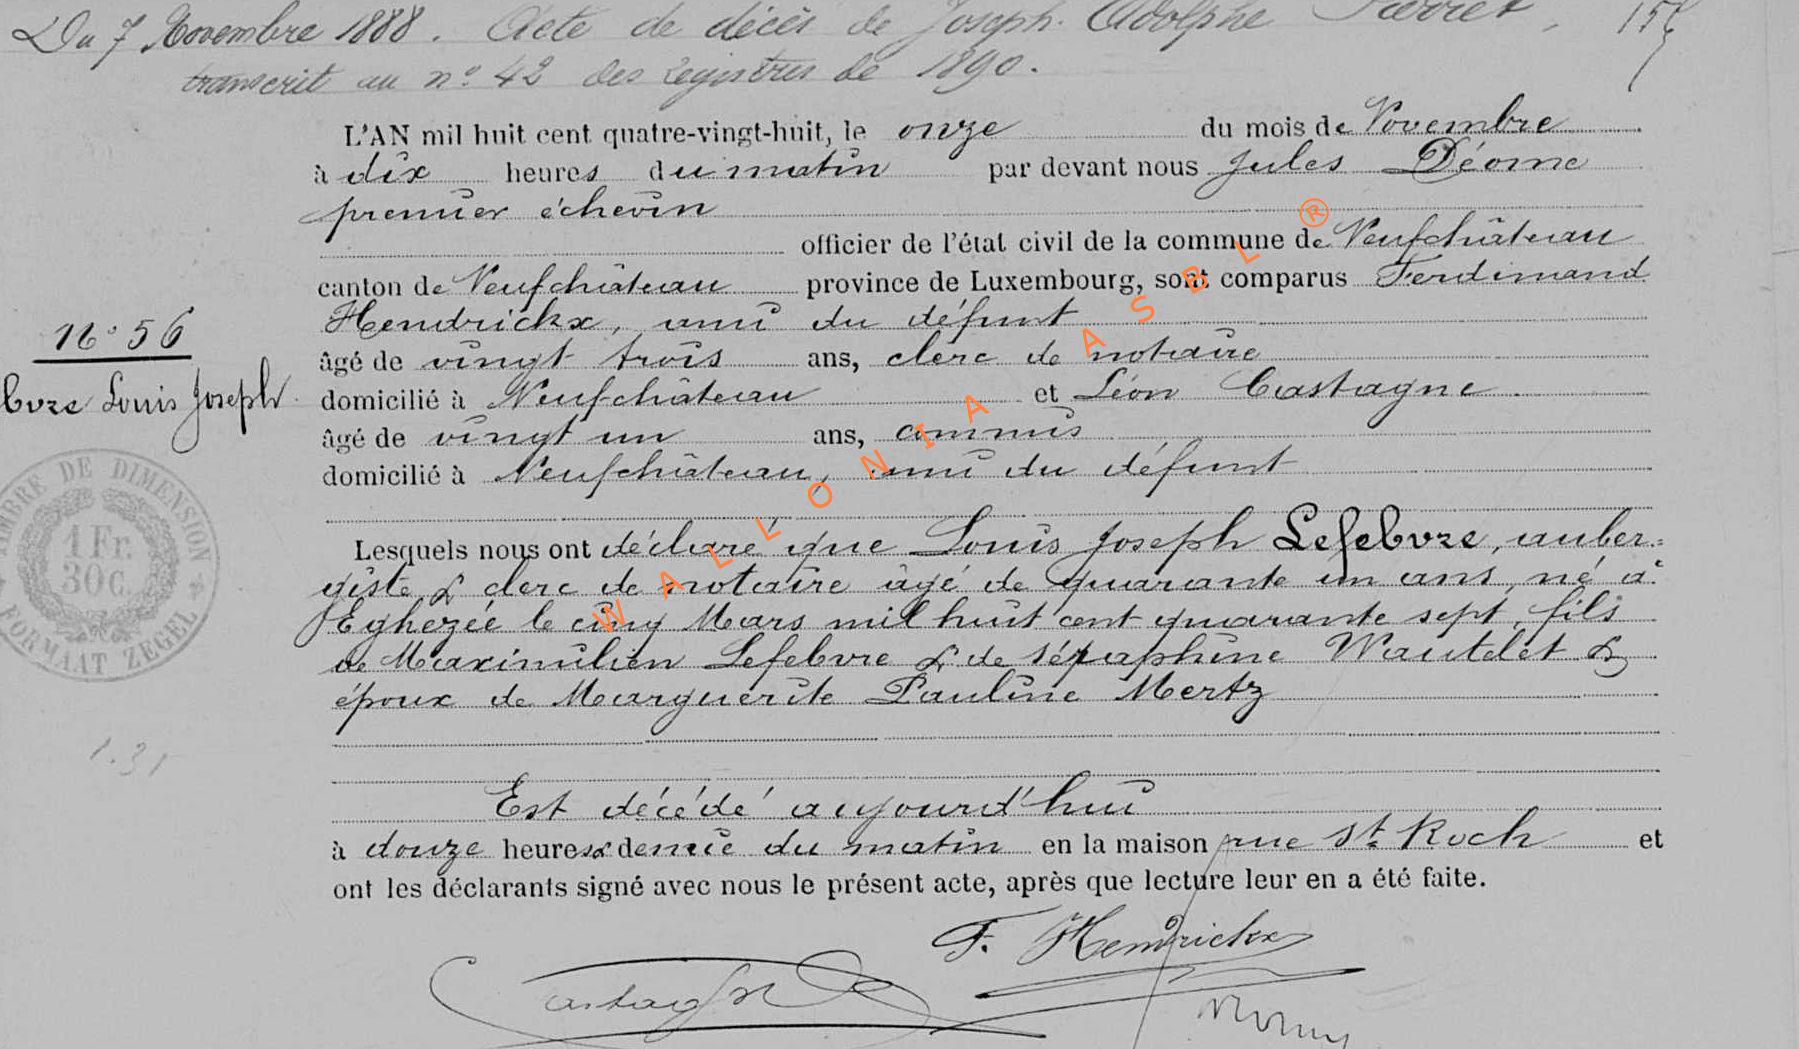 Du 7 Novembre 1888. Acte de décès de Joseph Adolphe Pierret,
transcrit au n° 42 des registres de 1890.
L'AN mil huit cent quatre-vingt-huit, le onze du mois de Novembre
à dix heures du matin par devant nous Jules Déome
premier échevin
officier de l'état civil de la commune de Neufchâteau
canton de Neufchâteau province de Luxembourg, sont comparus Ferdinand
Hendrickx, ami du défunt
âgé de vingt trois ans, clerc de notaire
N° 56
domicilié à Neufchâteau et Léon Castagne
bvre Louis Joseph
âgé de vingt un ans, commis
domicilié à Neufchâteau, ami du défunt
TIMBRE DE DIMENSION
1 Fr.
30 C.
FORMAAT ZEGEL
Lesquels nous ont déclaré que Louis Joseph Lefebvre, auber=
giste & clerc de notaire âgé de quarante un ans, né à
Eghezée le cinq Mars mil huit cent quarante sept, fils
de Maximilien Lefebvre & de Séraphine Wautelet &
époux de Marguerite Pauline Mertz
1.31
Est décédé aujourd'hui
à douze heures & demie du matin en la maison rue St Roch et
ont les déclarants signé avec nous le présent acte, après que lecture leur en a été faite.
F. Hendrickx
Castagne
WALLONIA ASBL ®